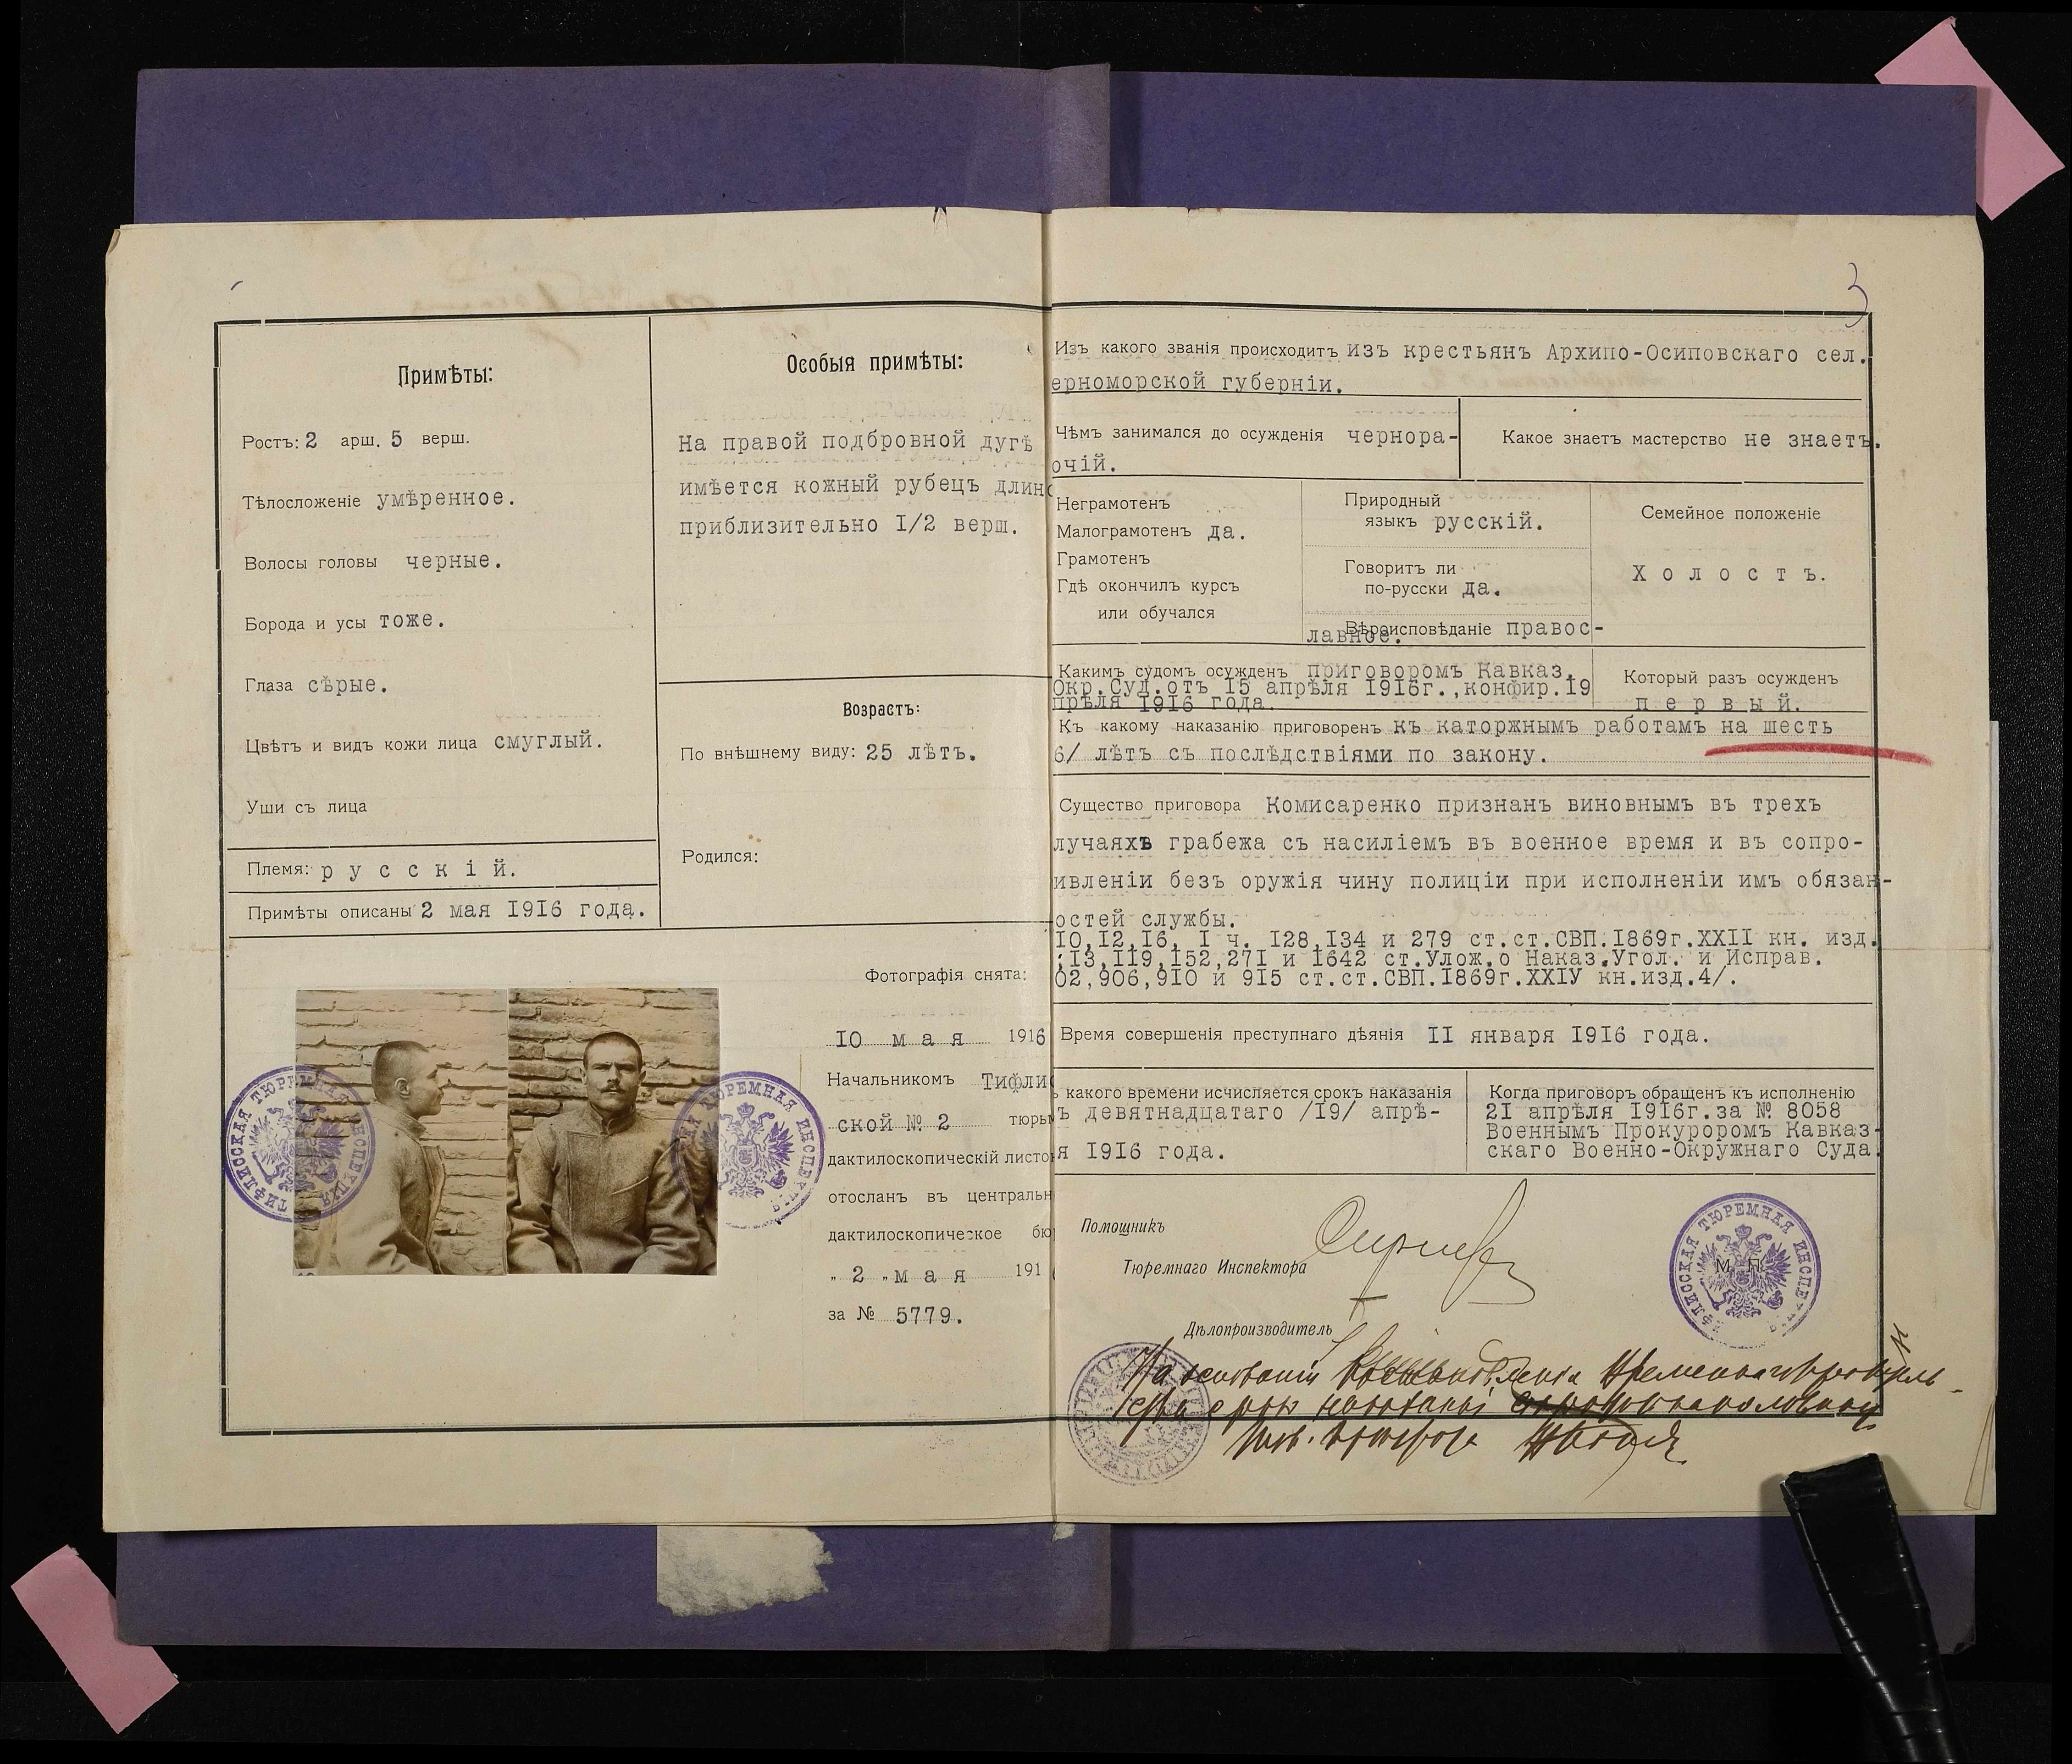 3
Примѣты:
Ростъ: 2 арш. 5 верш.
Тѣлосложеніе умѣренное.
Волосы головы черные.
Борода и усы тоже.
Глаза сѣрые.
Цвѣтъ и видъ кожи лица смуглый.
Уши съ лица
Племя: русскій.
Примѣты описаны 2 мая 1916 года.
Особыя примѣты:
На правой подбровной дугѣ
имѣется кожный рубецъ длин
приблизительно I/2 верш.
Возрастъ:
По внѣшнему виду: 25 лѣтъ.
Родился:
Фотографія снята:
IO мая 1916
Начальникомъ Тифли
ской № 2 тюрьм
дактилоскопическій листо
отосланъ въ центральн
дактилоскопическое бю
„ 2 „ мая 191
за № 5779.
ТИФЛИССКАЯ ТЮРЕМНАЯ ИНСПЕКЦІЯ
ТЮРЕМНАЯ ИНСПЕ
Изъ какого званія происходитъ изъ крестьянъ Архипо-Осиповскаго сел.
ерноморской губерніи.
Чѣмъ занимался до осужденія чернора-
очій.
Какое знаетъ мастерство не знаетъ.
Неграмотенъ
Малограмотенъ да.
Грамотенъ
Гдѣ окончилъ курсъ
или обучался
Природный
языкъ русскій.
Говоритъ ли
по-русски да.
Вѣроисповѣданіе правос-
лавное.
Семейное положеніе
Холостъ.
Какимъ судомъ осужденъ приговоромъ Кавказ.
Окр.Суд.отъ I5 апрѣля I9I6г.,конфир.I9
прѣля I9I6 года.
Который разъ осужденъ
первый.
Къ какому наказанію приговоренъ къ каторжнымъ работамъ на шесть
6/ лѣтъ съ послѣдствіями по закону.
Существо приговора Комисаренко признанъ виновнымъ въ трехъ
лучаяхъ грабежа съ насиліемъ въ военное время и въ сопро-
ивленіи безъ оружія чину полиціи при исполненіи имъ обязан-
остей службы.
IO,I2,I6, I ч. I28,I34 и 279 ст.ст.СВП.I869г.XXII кн. изд.
;I3,II9,I52,27I и I642 ст.Улож.о Наказ.Угол. и Исправ.
O2,906,9IO и 9I5 ст.ст.СВП.I869г.XXIУ кн.изд.4/.
Время совершенія преступнаго дѣянія II января I9I6 года.
какого времени исчисляется срокъ наказанія
ъ девятнадцатаго /I9/ апрѣ-
я I9I6 года.
Когда приговоръ обращенъ къ исполненію
2I апрѣля I9I6г.за № 8058
Военнымъ Прокуроромъ Кавказ-
скаго Военно-Окружнаго Суда.
Помощникъ
Тюремнаго Инспектора
Дѣлопроизводитель
М. П.
ФЛИССКАЯ ТЮРЕМНАЯ ИНСПЕ
На основаніи Временнаго
срокъ наказанія